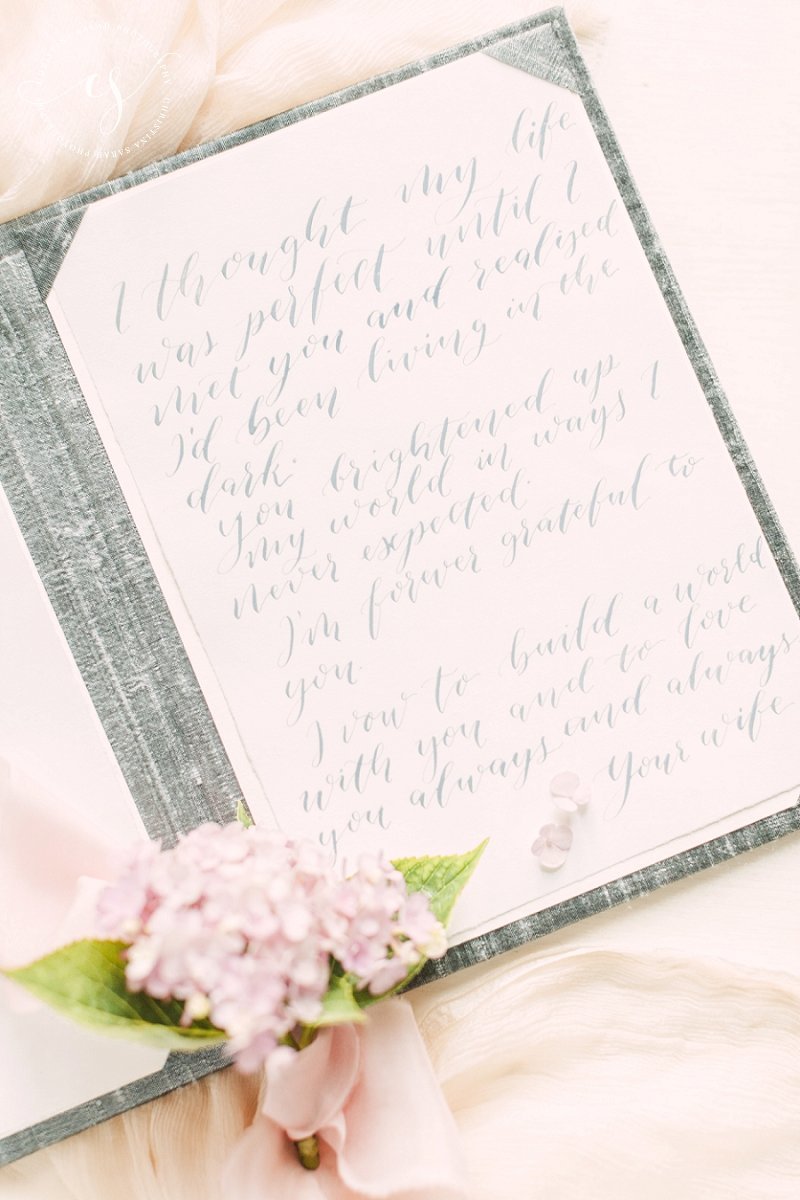 I thought my life
was perfect until I
met you and realised
I'd been living in the
dark.
you brightened up
my world in ways I
never expected.
I'm forever grateful to
you.
I vow to build a world
with you and to love
you always and always
Your wife
CS
CHRISTINA SARAH PHOTOGRAPHY